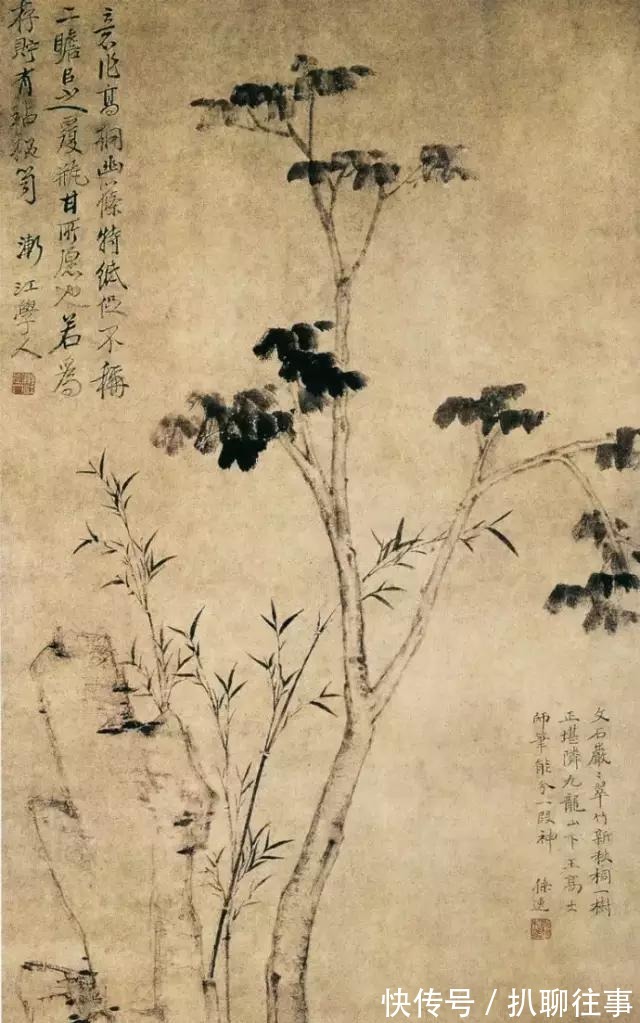 意作高桐幽篠特紙但不稱
二瞻以之覆瓿甘所愿也若為
存貯有玷緗笥 漸江學人
文石巖〻翠竹新秋桐一樹
正堪隣九龍山下王高士
師筆能分一段神
快传号／扒聊往事